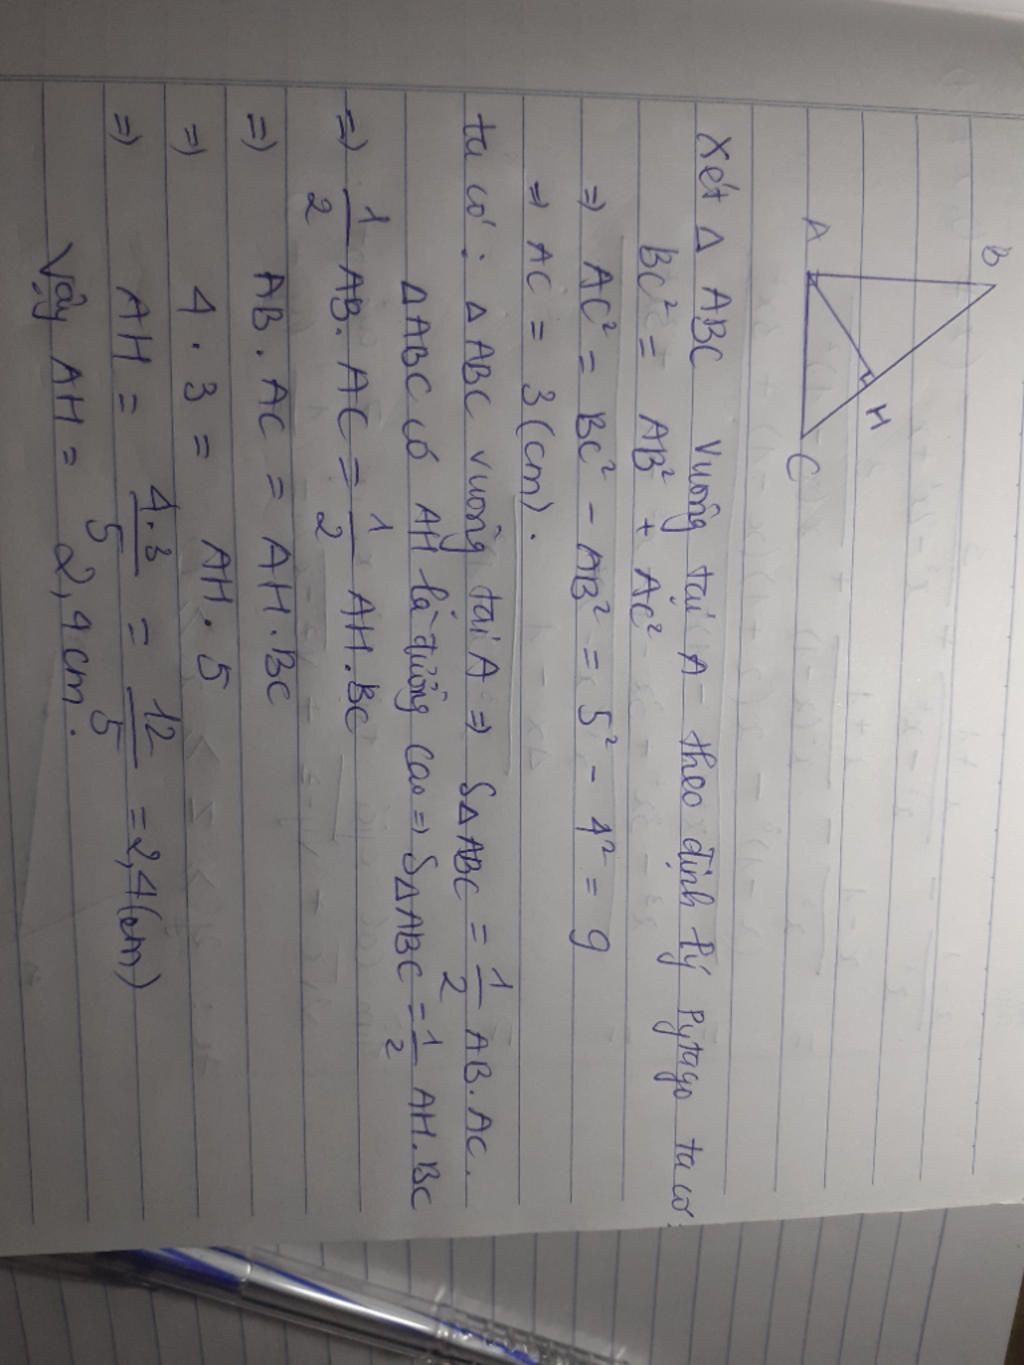 B
A
H
C
Xét Δ ABC vuông tại A theo định lý Pytago ta có:
BC² = AB² + AC²
=> AC² = BC² - AB² = 5² - 4² = 9
=> AC = 3 (cm).
ta có: Δ ABC vuông tại A => SΔABC = 1/2 AB.AC.
ΔABC có AH là đường cao => SΔABC = 1/2 AH.BC
=> 1/2 AB.AC = 1/2 AH.BC
=> AB.AC = AH.BC
=> 4.3 = AH.5
=> AH = 4.3/5 = 12/5 = 2,4 (cm)
Vậy AH = 2,4 cm.